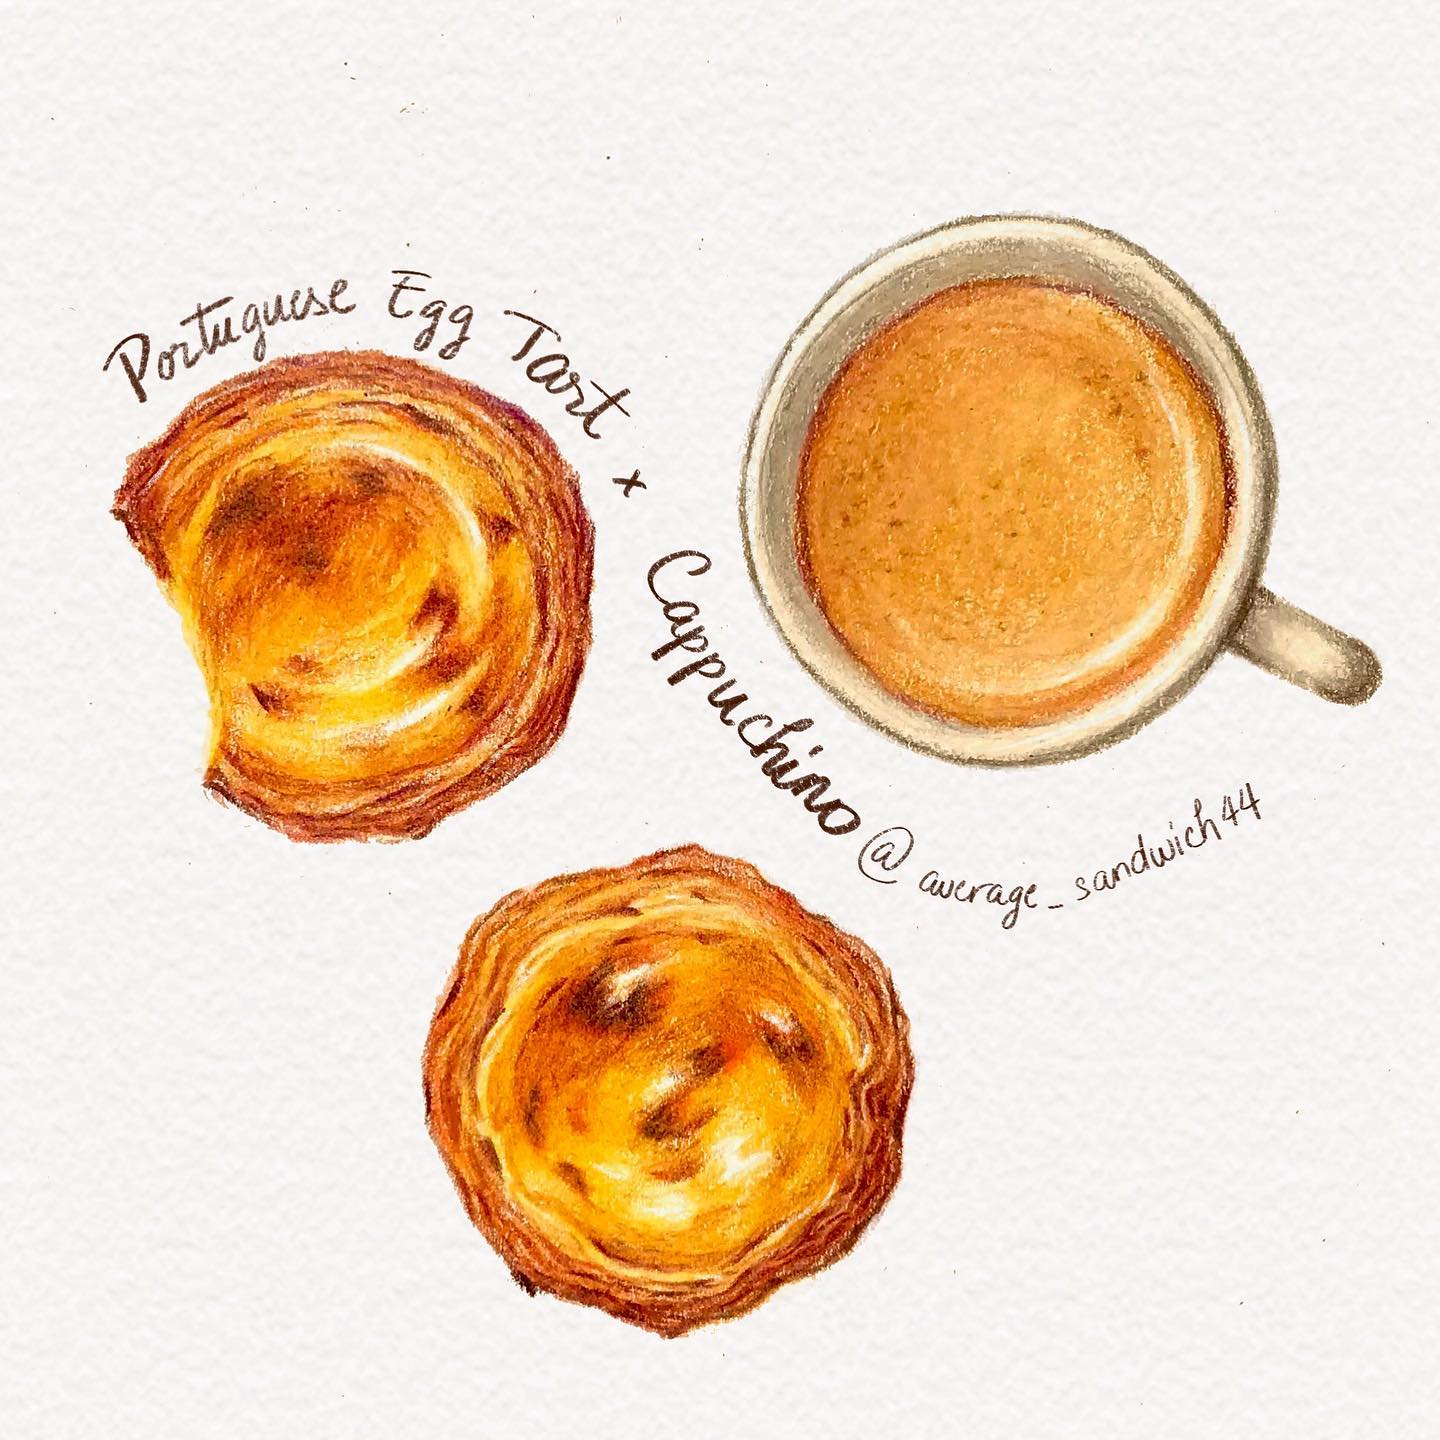 Portuguese Egg Tart x Cappuchino @average_sandwich44